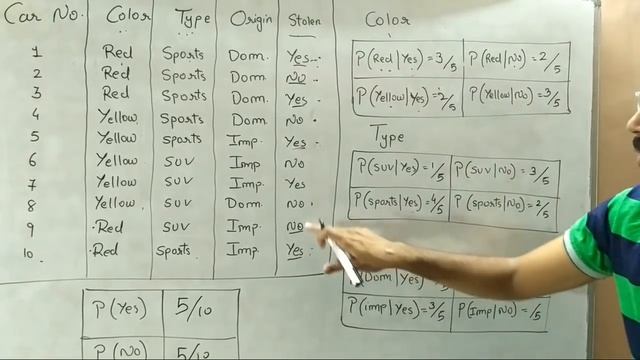 Car No. Color Type Origin Stolen
1 Red Sports Dom. Yes
2 Red Sports Dom. No
3 Red Sports Dom. Yes
4 Yellow Sports Dom. No
5 Yellow Sports Imp. Yes
6 Yellow SUV Imp No
7 Yellow SUV Imp Yes
8 Yellow SUV Dom. No
9 Red SUV Imp. No
10. Red Sports Imp. Yes
P(Yes) 5/10
P(No) 5/10
Color
P(Red|Yes) = 3/5 P(Red|No) = 2/5
P(Yellow|Yes) = 2/5 P(Yellow|No) = 3/5
Type
P(SUV|Yes) = 1/5 P(SUV|No) = 3/5
P(Sports|Yes) = 4/5 P(Sports|No) = 2/5
(Dom|Yes)
P(imp|Yes) = 3/5 P(Imp|No) = /5